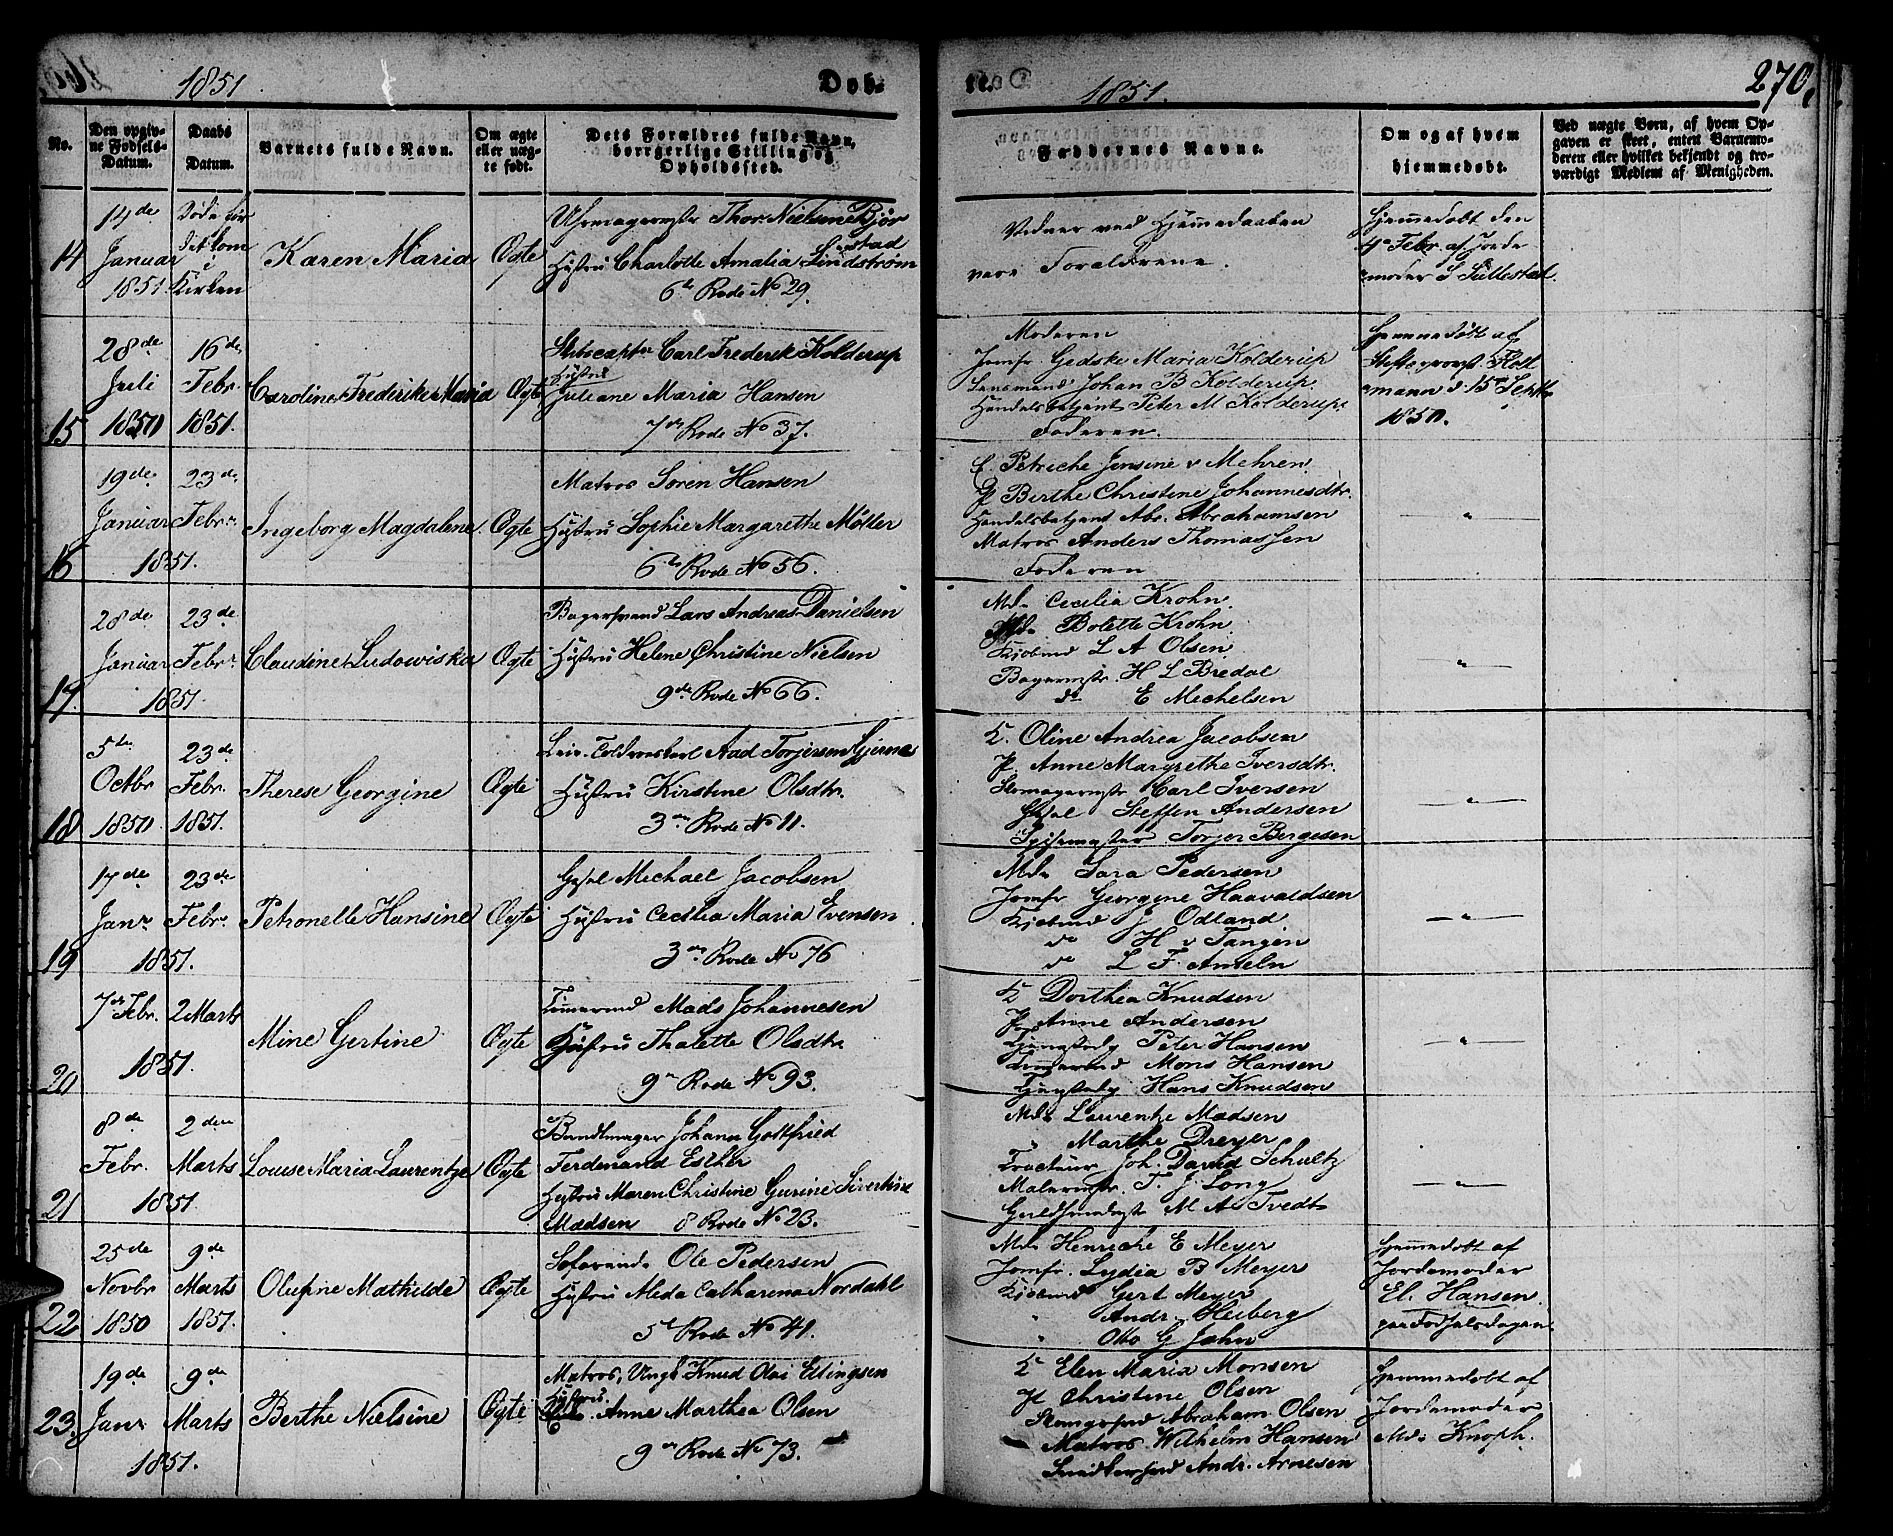 1851. Døbte. 1851. 270.
No. Den opgivne Fødsels-Datum. Daabs Datum. Barnets fulde Navn. Om ægte eller uægte født. Dets Forældres fulde Navn, borgerlige Stilling og Opholdssted. Faddernes Navne. Om og af hvem hjemmedøbt. Ved uægte Børn, af hvem Opgaven er skeet, enten Barnemoderen eller hvilket bekjendt og troværdigt Medlem af Menigheden.
14 14de Januar 1851. Døde før det kom i Kirken Karen Maria Ægte
Uhrmagermstr Thor Nielsen Bjørnstad
Hustru Charlotte Amalia Lindstrøm
6te Rode No 29.
Vidner ved Hjemmedaaben
vare Forældrene.
Hjemmedøbt den
4de Febr. af Jordemoder S Sullestad.
15 28de Juli 1850 16de Febr. 1851. Caroline Frederike Maria Ægte
Skibscaptn Carl Frederik Kolderup
Hustru
Juliane Maria Hansen
7de Rode No 37.
Moderen
Jomfr. Gedske Maria Kolderup
Lensmand Johan B Kolderup.
Handelsbetjent Peter M Kolderup.
Faderen.
Hjemmedøbt af
Stiftsprovst
d. 15de Septbr
1850.
16 19de Januar 23de Febr. 1851. Ingeborg Magdalene. Ægte
Matros Søren Hansen
Hustru Sophie Margarethe Møller
6te Rode No 56.
C. Petriche Jensine v Mehren.
P Berthe Christine Johannesdtr.
Handelsbetjent Abr. Abrahamsen
Matros Anders Thomassen
Faderen
— " —
17. 28de Januar 23de Febr. 1851. Claudine Ludowiska Ægte
Bagersvend Lars Andreas Danielsen
Hustru Helene Christine Nielsen
9de Rode No 66.
Md. Cecilia Krohn.
Md. Bolette Krohn.
Kjøbmd L A Olsen.
Bagermstr. H L Bredal
do E Mechelsen
— " —
18 5te Octbr 1850. 23de Febr. 1851. Therese Georgine Ægte
Aad Torjersen Gjernes
Hustru Kirstine Olsdtr.
3die Rode No 11.
K. Oline Andrea Jacobsen
P. Anne Margrethe Iversdtr.
Skomagermstr. Carl Iversen
Gesel Steffen Andersen
Torjer Bergesen
— " —
19 17de Janr. 23de Febr. 1851. Petronelle Hansine Ægte
Gesel Michael Jacobsen
Hustru Cecilia Maria Evensen
3die Rode No 76
Md. Sara Pedersen
Jomfr Georgene Haavaldsen
Kjøbmd J. Odland
do H v Tangen
do L F. Anteln
— " —
20 7de Febr. 2 Marts 1851. Mine Gertine Ægte
Tømermd Mads Johannesen
Hustru Thalette Olsdtr
9de Rode No 93.
K Dorthea Knudsen
P. Anne Andersen
Peter Hansen
Tømermd Mons Hansen
Hans Knudsen
— " —
21 8de Febr. 2den Marts 1851. Louise Maria Laurentze Ægte
Bundtmager Johann Gottfried
Ferdenand Esther
Hustru Maren Christine Gurine Sivertsine
Madsen 8 Rode No 23.
Md. Laurentze Madsen
" Marthe Dreyer
Tracteur Joh. David Schultz
Malermstr. T. J. Long
Guldsmedmstr M A Tvedt
— " —
22 25de Novbr 1850 9de Marts 1851. Olufine Mathilde Ægte
Søfarende Ole Pedersen
Hustru Aleda Catharena Nordahl
5te Rode No 41.
Md. Henriche E Meyer
Jomfr. Lydia B Meyer
Kjøbmd Gert Meyer
" Andr. Heiberg
" Otto G Jahn
Hjemmedøbt af
Jordemoder
El. Hansen.
paa Fødselsdagen
23. 19de Janr 9de Marts 1851. Berthe Nielsine Ægte
Matros, Ungk Knud Olai Ellingsen
Hustru
Anne Marthea Olsen
9de Rode No 73.
K Elen Maria Monsen
P Christine Olsen
Abraham Olsen
Matros Wilhelm Hansen
Andr. Arnesen
Hjemmedøbt af
Jordemoder
Md. Knoph.